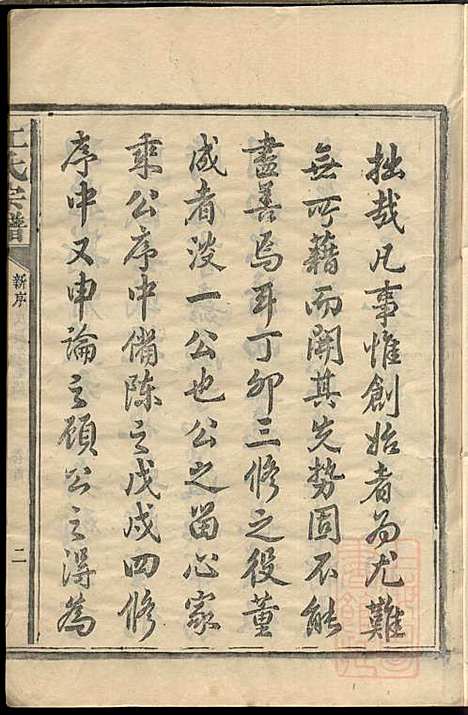 拙哉凡事惟創始者為尤難
無所藉而開其先勢固不能
盡善焉耳丁卯三修之役董
成者沒一公也公之留心家
乘公序中備陳之戊戌四修
序中又申論之顧公之得為
氏宗譜
新序
二